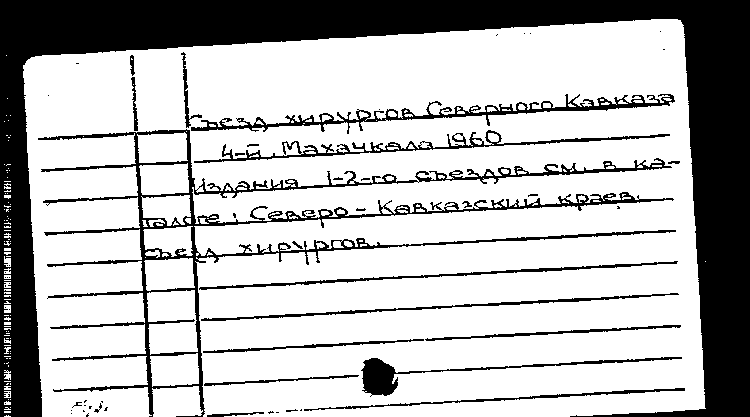 Съезд хирургов Северного Кавказа
4-й. Махачкала 1960
Издания 1-2-го съездов см. в ка-
талоге: Северо-Кавказский краев.
съезд хирургов.